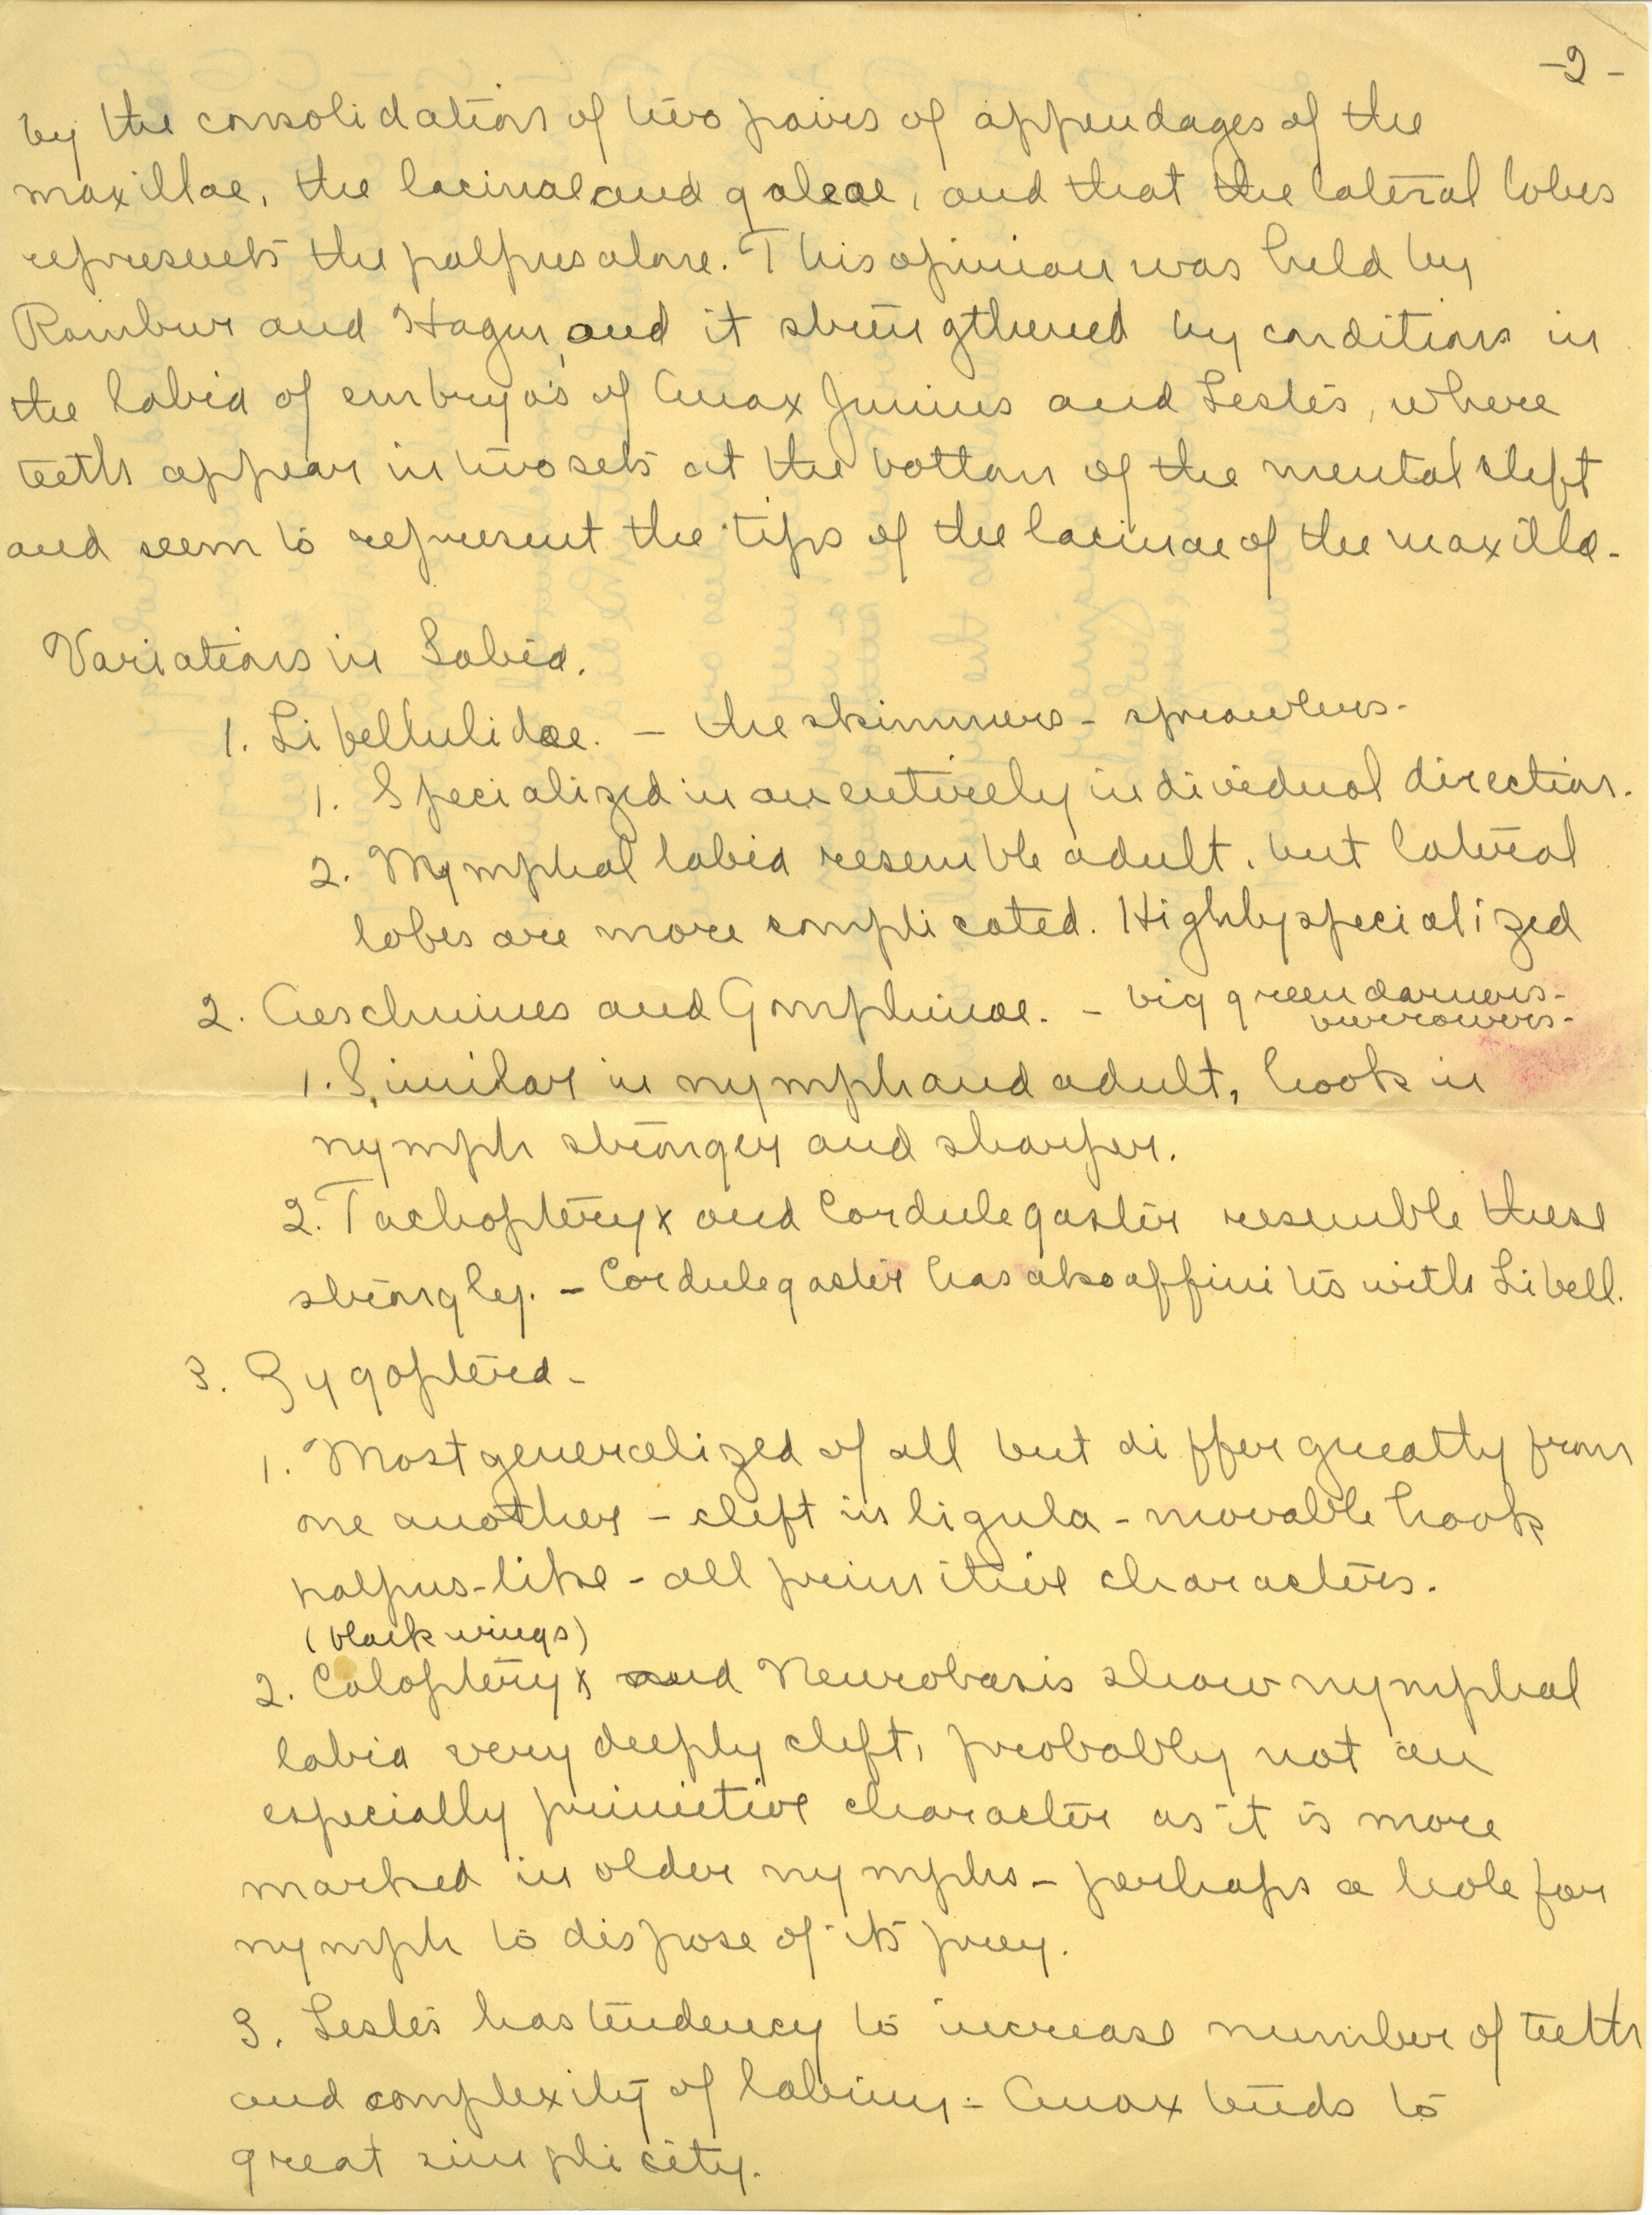 -2-
by the consolidation of two pairs of appendages of the
maxillae, the lacinae and galeae, and that the lateral lobes
represents the palpus alone. This opinion was held by
Rambur and Hagen, and it strengthened by conditions in
the labia of embryos of Anax Junius and Lestes, where
teeth appear in two sets at the bottom of the mental cleft
and seem to represent the tips of the lacinae of the maxilla.
Variations in Labia.
1. Libellulidae. - the skimmers - sprawlers.
1. Specialized in an entirely individual direction.
2. Nymphal labia resemble adult, but lateral
lobes are more complicated. Highly specialized
2. Aeschnines and Gomphinae. - big green darners -
burrowers -
1. Similar in nymph and adult, hook in
nymph stronger and sharper.
2. Tachopteryx and Cordulegaster resemble these
strongly. - Cordulegaster has also affinities with Libell.
3. Zygoptera -
1. Most generalized of all but differ greatly from
one another - cleft in ligula - movable hook
palpus-like - all primitive characters.
(black wings)
2. Calopteryx and Neurobasis show nymphal
labia very deeply cleft, probably not an
especially primitive character as it is more
marked in older nymphs - perhaps a hole for
nymph to dispose of its prey.
3. Lestes has tendency to increase number of teeth
and complexity of labium - Anax tends to
great simplicity.